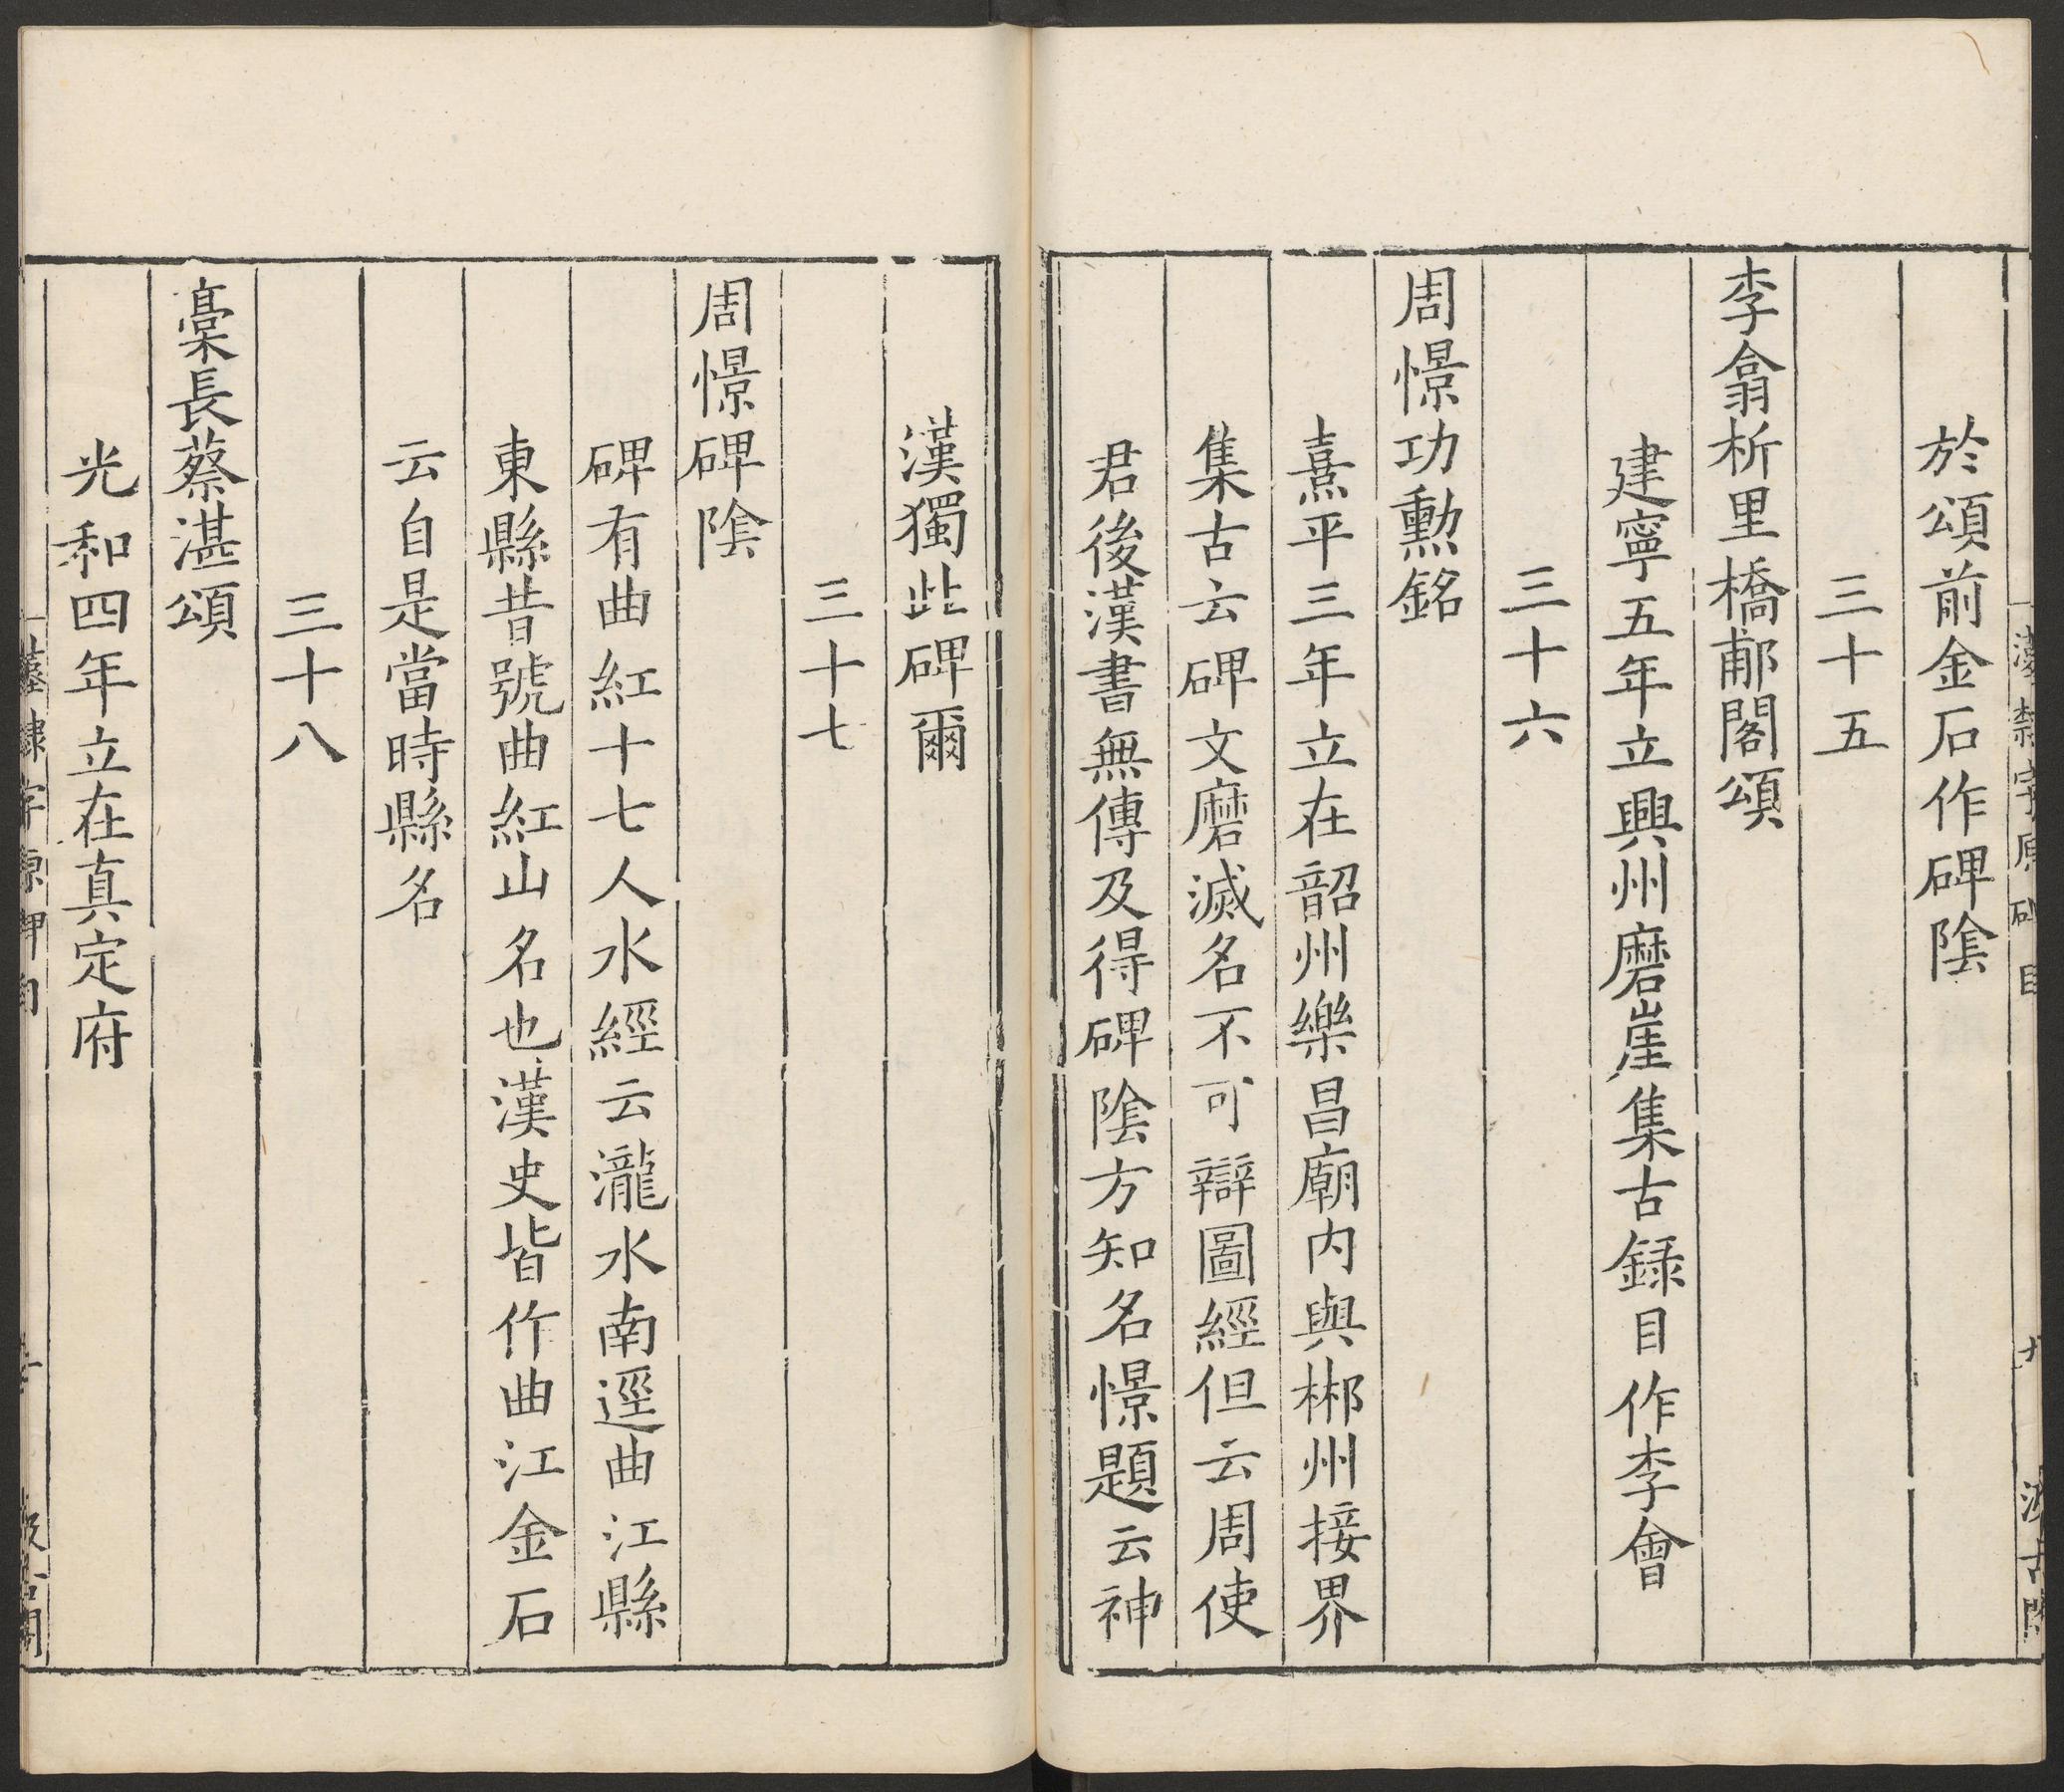 於頌前金石作碑陰
三十五
李翕析里橋郙閣頌
建寧五年立興州磨崖集古録目作李會
三十六
周憬功勲銘
熹平三年立在韶州樂昌廟内與郴州接界
集古云碑文磨滅名不可辯圖經但云周使
君後漢書無傳及得碑陰方知名憬題云神
漢獨此碑爾
三十七
周憬碑陰
碑有曲紅十七人水經云瀧水南逕曲江縣
東縣昔號曲紅山名也漢史皆作曲江金石
云自是當時縣名
三十八
稾長蔡湛頌
光和四年立在真定府